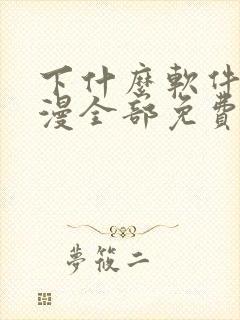 下什麽軟件
漫全部免費
夢筱二